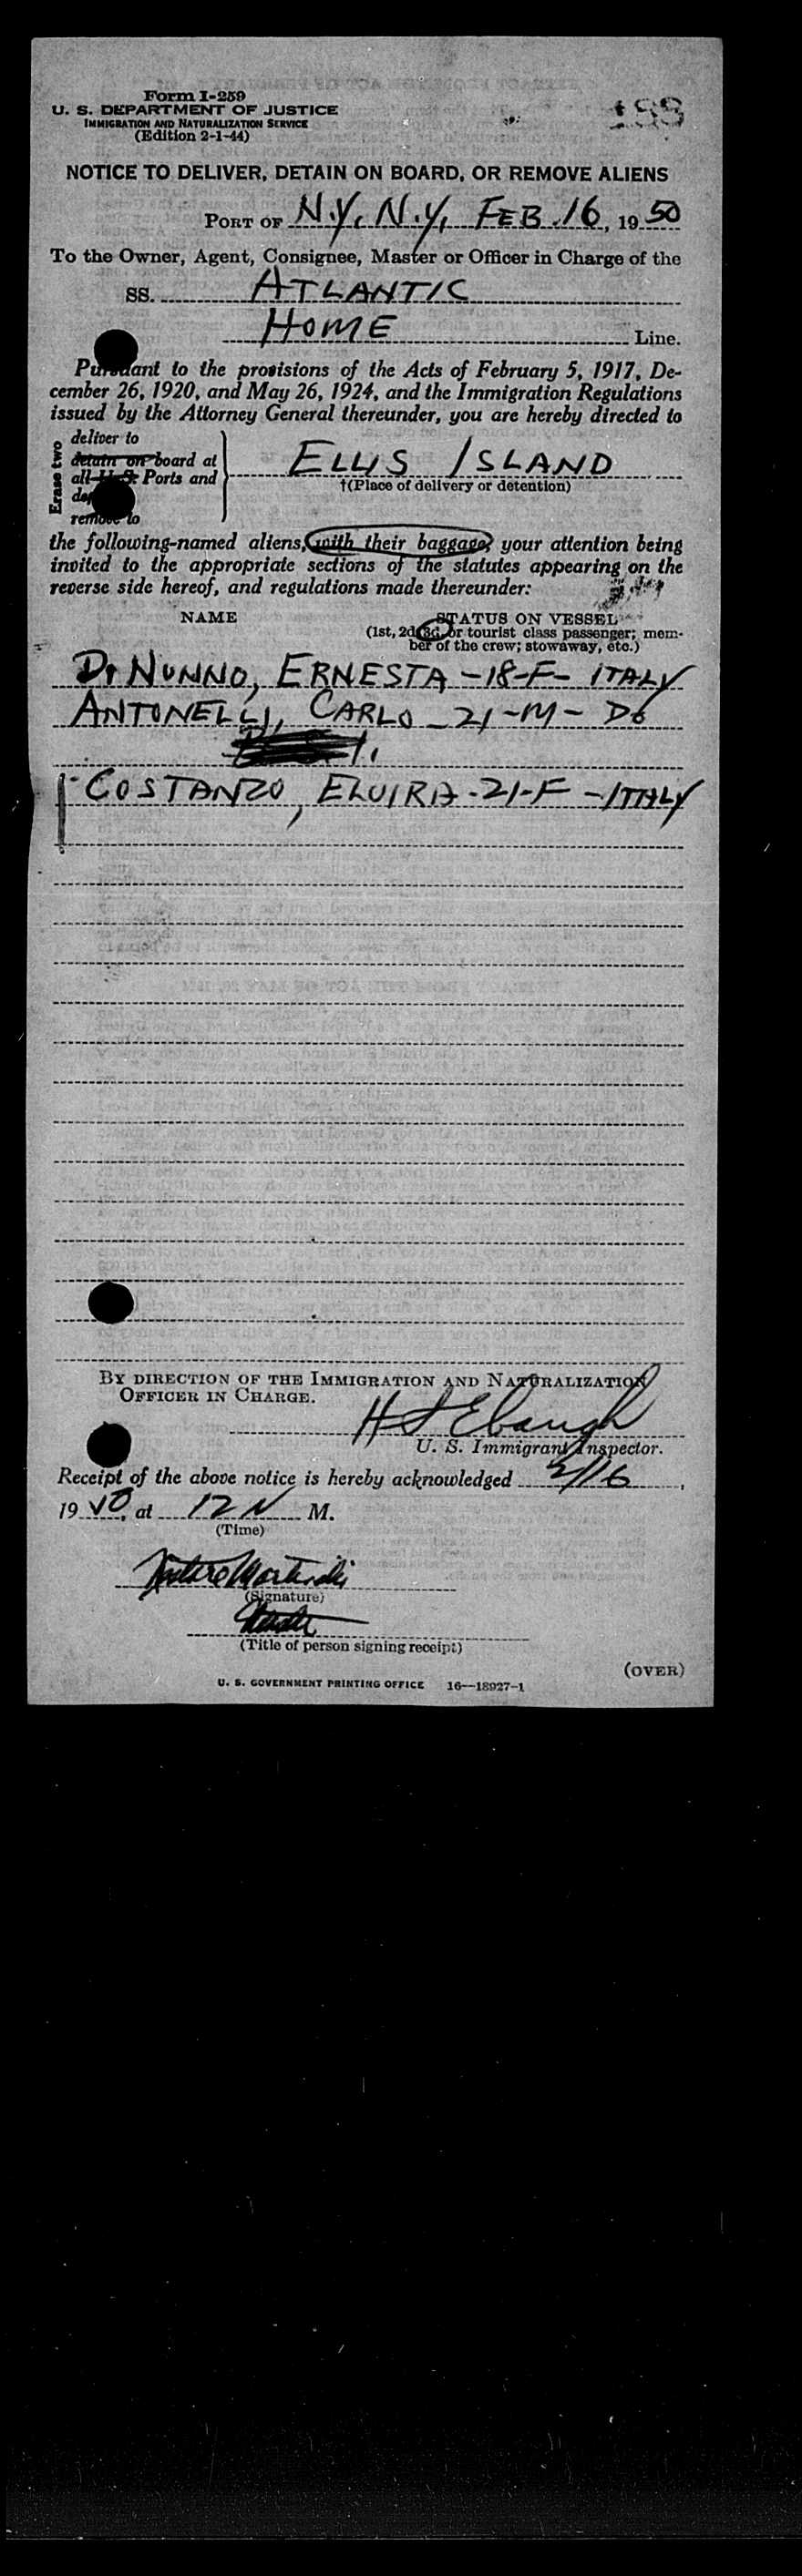 Form I-259
U. S. DEPARTMENT OF JUSTICE
IMMIGRATION AND NATURALIZATION SERVICE
(Edition 2-1-44)
NOTICE TO DELIVER, DETAIN ON BOARD, OR REMOVE ALIENS
PORT OF N.Y. N.Y, FEB. 16, 19 50
To the Owner, Agent, Consignee, Master or Officer in Charge of the
SS. ATLANTIC
HOME Line.
Pursuant to the provisions of the Acts of February 5, 1917, De-
cember 26, 1920, and May 26, 1924, and the Immigration Regulations
issued by the Attorney General thereunder, you are hereby directed to
Erase two
deliver to
detain on board at
all U. S. Ports and
remove to
ELLIS ISLAND
†(Place of delivery or detention)
the following-named aliens, with their baggage, your attention being
invited to the appropriate sections of the statutes appearing on the
reverse side hereof, and regulations made thereunder:
NAME
STATUS ON VESSEL
(1st, 2d, 3d, or tourist class passenger; mem-
ber of the crew; stowaway, etc.)
DI NUNNO, ERNESTA - 18-F- ITALY
ANTONELLI, CARLO - 21-M- DO
COSTANZO, ELVIRA - 21-F - ITALY
BY DIRECTION OF THE IMMIGRATION AND NATURALIZATION
OFFICER IN CHARGE.
H S Ebaugh
U. S. Immigrant Inspector.
Receipt of the above notice is hereby acknowledged 2/16,
19 50, at 12 N M.
(Time)
(Signature)
(Title of person signing receipt)
(OVER)
U. S. GOVERNMENT PRINTING OFFICE 16—18927-1